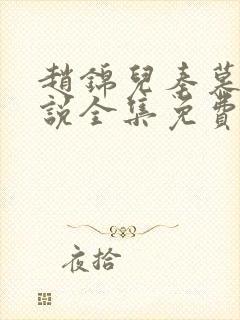 趙錦兒秦慕
說全集免費
夜拾